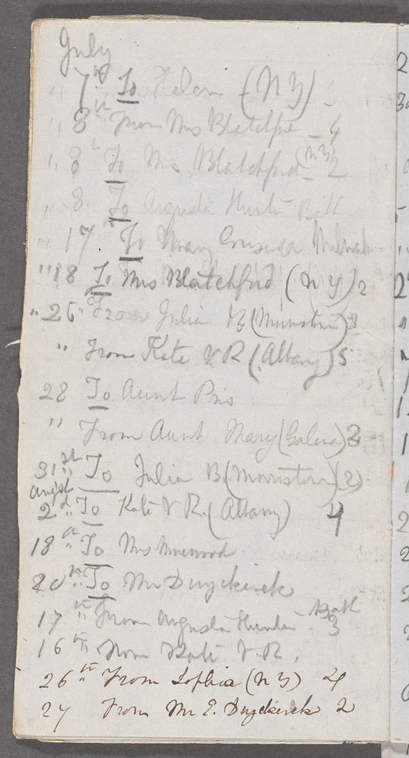 July
" 7th To Helen (N Y)
" 8th From Mrs Blatchford 4
" 8th To Mrs Blatchford (N Y) 2
" 8 To Augusta Hunter
" 17th To Mary
" 18 To Mrs Blatchford (N Y) 2
" 25 From Julia B (Morristown) 3
" From Kate V R (Albany) 5
28 To Aunt Pris
" From Aunt Mary (Galena) 3
31st " To Julia B (Morristown) (2)
August
2d " To Kate V R. (Albany) 4
18th " To Mrs Morewood
20th " To Mr Duyckinck
17th " From Augusta Hunter 3
16th " From Kate V. R.
26th From Sophia (N Y) 4
27 From Mr E. Duyckinck 2